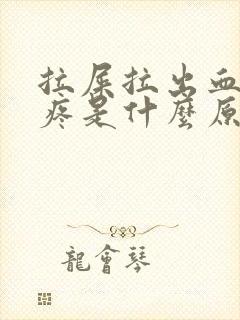 拉屎拉出血
疼是什麼原
龍會琴